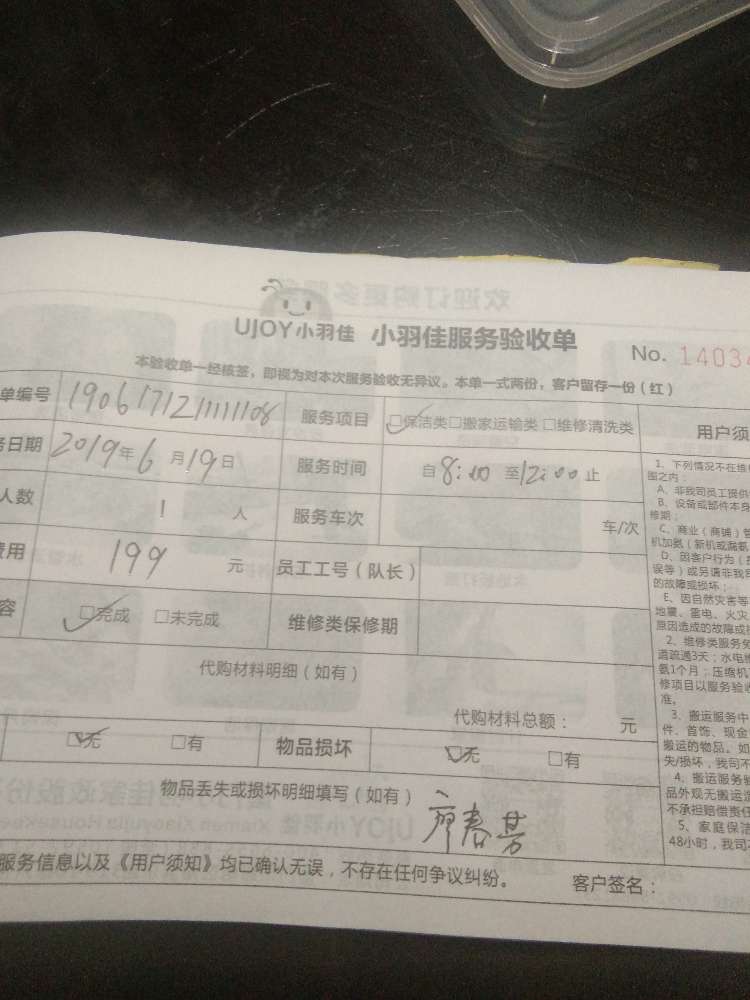 UJOY小羽佳 小羽佳服务验收单
No. 14034
本验收单一经核签，即视为对本次服务验收无异议。本单一式两份，客户留存一份（红）
单编号 190617121111108 服务项目 □保洁类□搬家运输类□维修清洗类 用户须
务日期 2019年6月19日 服务时间 自8:00至12:00止
人数 1人 服务车次 车/次
费用 199元 员工工号（队长）
容 □完成 □未完成 维修类保修期
代购材料明细（如有）
代购材料总额： 元
□无 □有 物品损坏 □无 □有
物品丢失或损坏明细填写（如有）
廖春芳
服务信息以及《用户须知》均已确认无误，不存在任何争议纠纷。 客户签名：
1、下列情况不在维
围之内：
A、非我司员工提供
B、设备或部件本身
修期；
C、商业（商铺）管
机加氨（新机或漏氨
D、因客户行为（
误等）或另请非我
的故障或损坏；
E、因自然灾害等
地震、雷电、火灾
原因造成的故障或
2、维修类服务务
道疏通3天；水电
氨1个月；压缩机
修项目以服务验收
准。
3、搬运服务中
件、首饰、现金
搬运的物品。如
失/损坏，我司不
4、搬运服务
品外观无搬运造
不承担赔偿责任
5、家庭保洁
48小时，我司